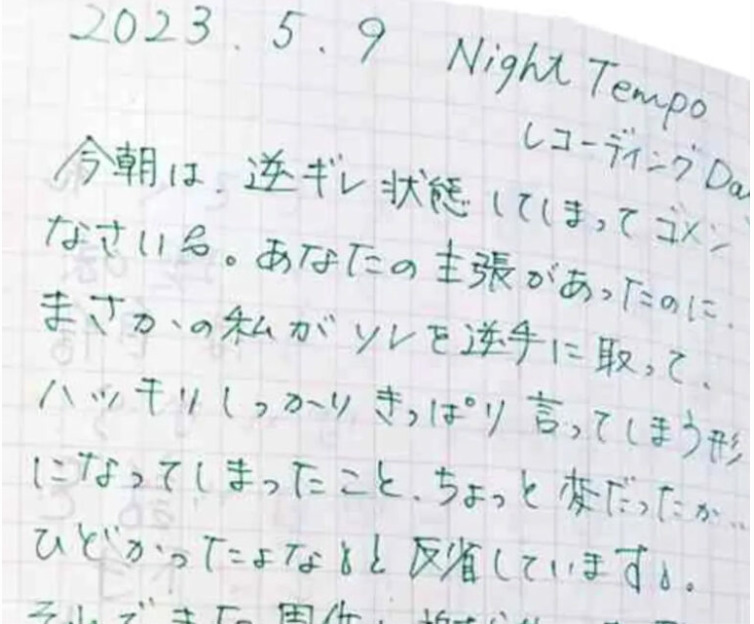 2023.5.9 Night Tempo
レコーディング Da
今朝は、逆ギレ状態してしまってゴメン
なさいね。あなたの主張があったのに、
まさかの私がソレを逆手に取って、
ハッキリしっかりきっぱり言ってしまう形
になってしまったこと、ちょっと変だったか…
ひどかったよなぁと反省しています。